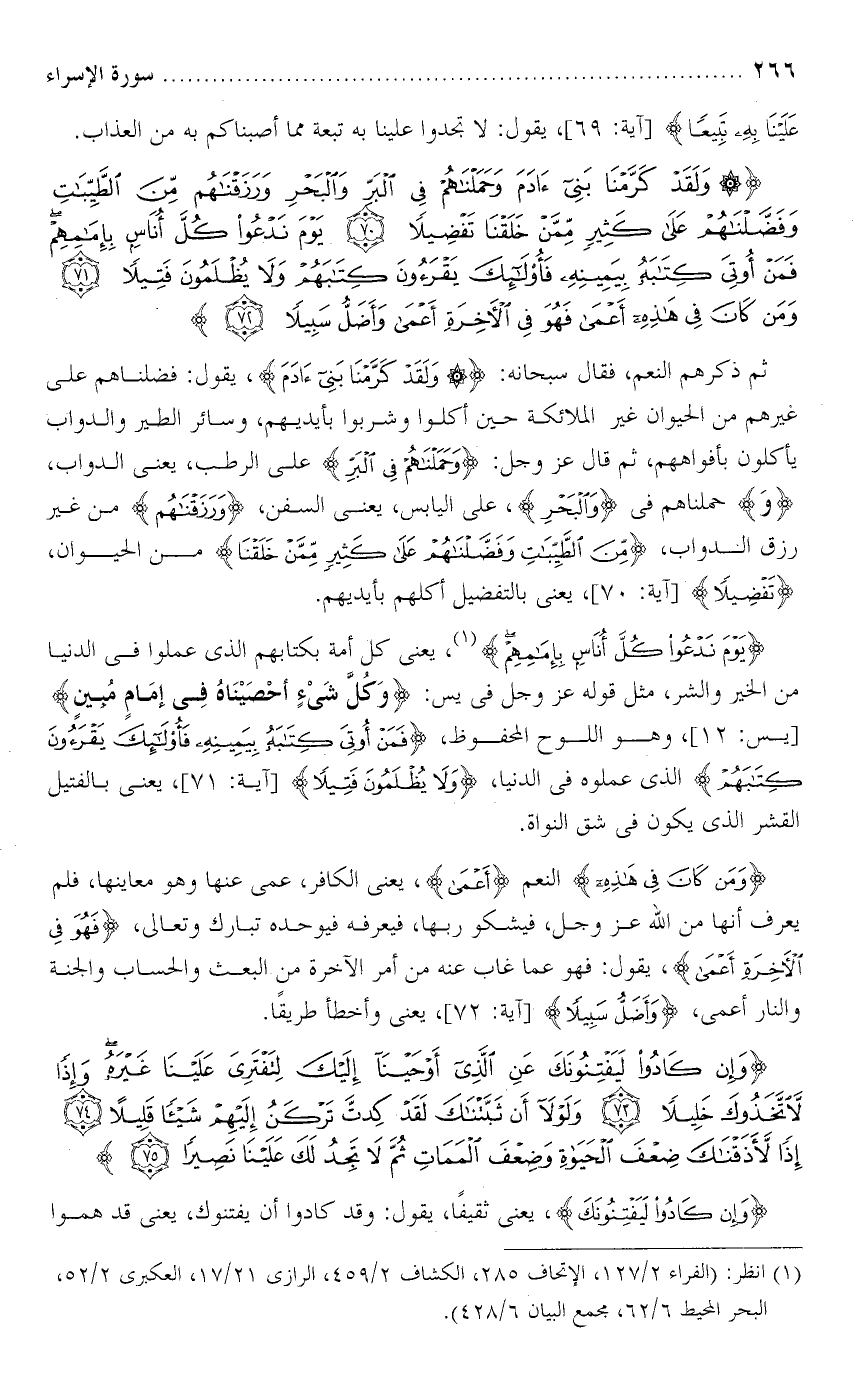 ٢٦٦ ........................................................................ سورة الإسراء
عَلَيْنَا بِهِۦ تَبِيعًا﴾ [آية: ٦٩]، يقول: لا تجدوا علينا به تبعة مما أصبناكم به من العذاب.
﴿۞ وَلَقَدْ كَرَّمْنَا بَنِىٓ ءَادَمَ وَحَمَلْنَٰهُمْ فِى ٱلْبَرِّ وَٱلْبَحْرِ وَرَزَقْنَٰهُم مِّنَ ٱلطَّيِّبَٰتِ
وَفَضَّلْنَٰهُمْ عَلَىٰ كَثِيرٍ مِّمَّنْ خَلَقْنَا تَفْضِيلًا ٧٠ يَوْمَ نَدْعُوا۟ كُلَّ أُنَاسٍۭ بِإِمَٰمِهِمْ ۖ
فَمَنْ أُوتِىَ كِتَٰبَهُۥ بِيَمِينِهِۦ فَأُو۟لَٰٓئِكَ يَقْرَءُونَ كِتَٰبَهُمْ وَلَا يُظْلَمُونَ فَتِيلًا ٧١
وَمَن كَانَ فِى هَٰذِهِۦٓ أَعْمَىٰ فَهُوَ فِى ٱلْءَاخِرَةِ أَعْمَىٰ وَأَضَلُّ سَبِيلًا ٧٢ ﴾
ثم ذكرهم النعم، فقال سبحانه: ﴿۞ وَلَقَدْ كَرَّمْنَا بَنِىٓ ءَادَمَ﴾، يقول: فضلناهم على
غيرهم من الحيوان غير الملائكة حين أكلوا وشربوا بأيديهم، وسائر الطير والدواب
يأكلون بأفواههم، ثم قال عز وجل: ﴿وَحَمَلْنَٰهُمْ فِى ٱلْبَرِّ﴾ على الرطب، يعنى الدواب،
﴿وَ﴾ حملناهم فى ﴿وَٱلْبَحْرِ﴾، على اليابس، يعنى السفن، ﴿وَرَزَقْنَٰهُم﴾ من غير
رزق الدواب، ﴿مِّنَ ٱلطَّيِّبَٰتِ وَفَضَّلْنَٰهُمْ عَلَىٰ كَثِيرٍ مِّمَّنْ خَلَقْنَا﴾ من الحيوان،
﴿تَفْضِيلًا﴾ [آية: ٧٠]، يعنى بالتفضيل أكلهم بأيديهم.
﴿يَوْمَ نَدْعُوا۟ كُلَّ أُنَاسٍۭ بِإِمَٰمِهِمْ ۖ﴾(١)، يعنى كل أمة بكتابهم الذى عملوا فى الدنيا
من الخير والشر، مثل قوله عز وجل فى يس: ﴿وَكُلَّ شَىْءٍ أحْصَيْنَاهُ فِى إمَامٍ مُبِينٍ﴾
[يس: ١٢]، وهو اللوح المحفوظ، ﴿فَمَنْ أُوتِىَ كِتَٰبَهُۥ بِيَمِينِهِۦ فَأُو۟لَٰٓئِكَ يَقْرَءُونَ
كِتَٰبَهُمْ﴾ الذى عملوه فى الدنيا، ﴿وَلَا يُظْلَمُونَ فَتِيلًا﴾ [آية: ٧١]، يعنى بالفتيل
القشر الذى يكون فى شق النواة.
﴿وَمَن كَانَ فِى هَٰذِهِۦٓ﴾ النعم ﴿أَعْمَىٰ﴾، يعنى الكافر، عمى عنها وهو معاينها، فلم
يعرف أنها من الله عز وجل، فيشكو ربها، فيعرفه فيوحده تبارك وتعالى، ﴿فَهُوَ فِى
ٱلْءَاخِرَةِ أَعْمَىٰ﴾، يقول: فهو عما غاب عنه من أمر الآخرة من البعث والحساب والجنة
والنار أعمى، ﴿وَأَضَلُّ سَبِيلًا﴾ [آية: ٧٢]، يعنى وأخطأ طريقًا.
﴿وَإِن كَادُوا۟ لَيَفْتِنُونَكَ عَنِ ٱلَّذِىٓ أَوْحَيْنَآ إِلَيْكَ لِتَفْتَرِىَ عَلَيْنَا غَيْرَهُۥ ۖ وَإِذًا
لَّٱتَّخَذُوكَ خَلِيلًا ٧٣ وَلَوْلَآ أَن ثَبَّتْنَٰكَ لَقَدْ كِدتَّ تَرْكَنُ إِلَيْهِمْ شَيْـًٔا قَلِيلًا ٧٤
إِذًا لَّأَذَقْنَٰكَ ضِعْفَ ٱلْحَيَوٰةِ وَضِعْفَ ٱلْمَمَاتِ ثُمَّ لَا تَجِدُ لَكَ عَلَيْنَا نَصِيرًا ٧٥ ﴾
﴿وَإِن كَادُوا۟ لَيَفْتِنُونَكَ﴾، يعنى ثقيفًا، يقول: وقد كادوا أن يفتنوك، يعنى قد هموا
(١) انظر: (الفراء ١٢٧/٢، الإتحاف ٢٨٥، الكشاف ٤٥٩/٢، الرازى ١٧/٢١، العكبرى ٥٢/٢،
البحر المحيط ٦٢/٦، مجمع البيان ٤٢٨/٦).